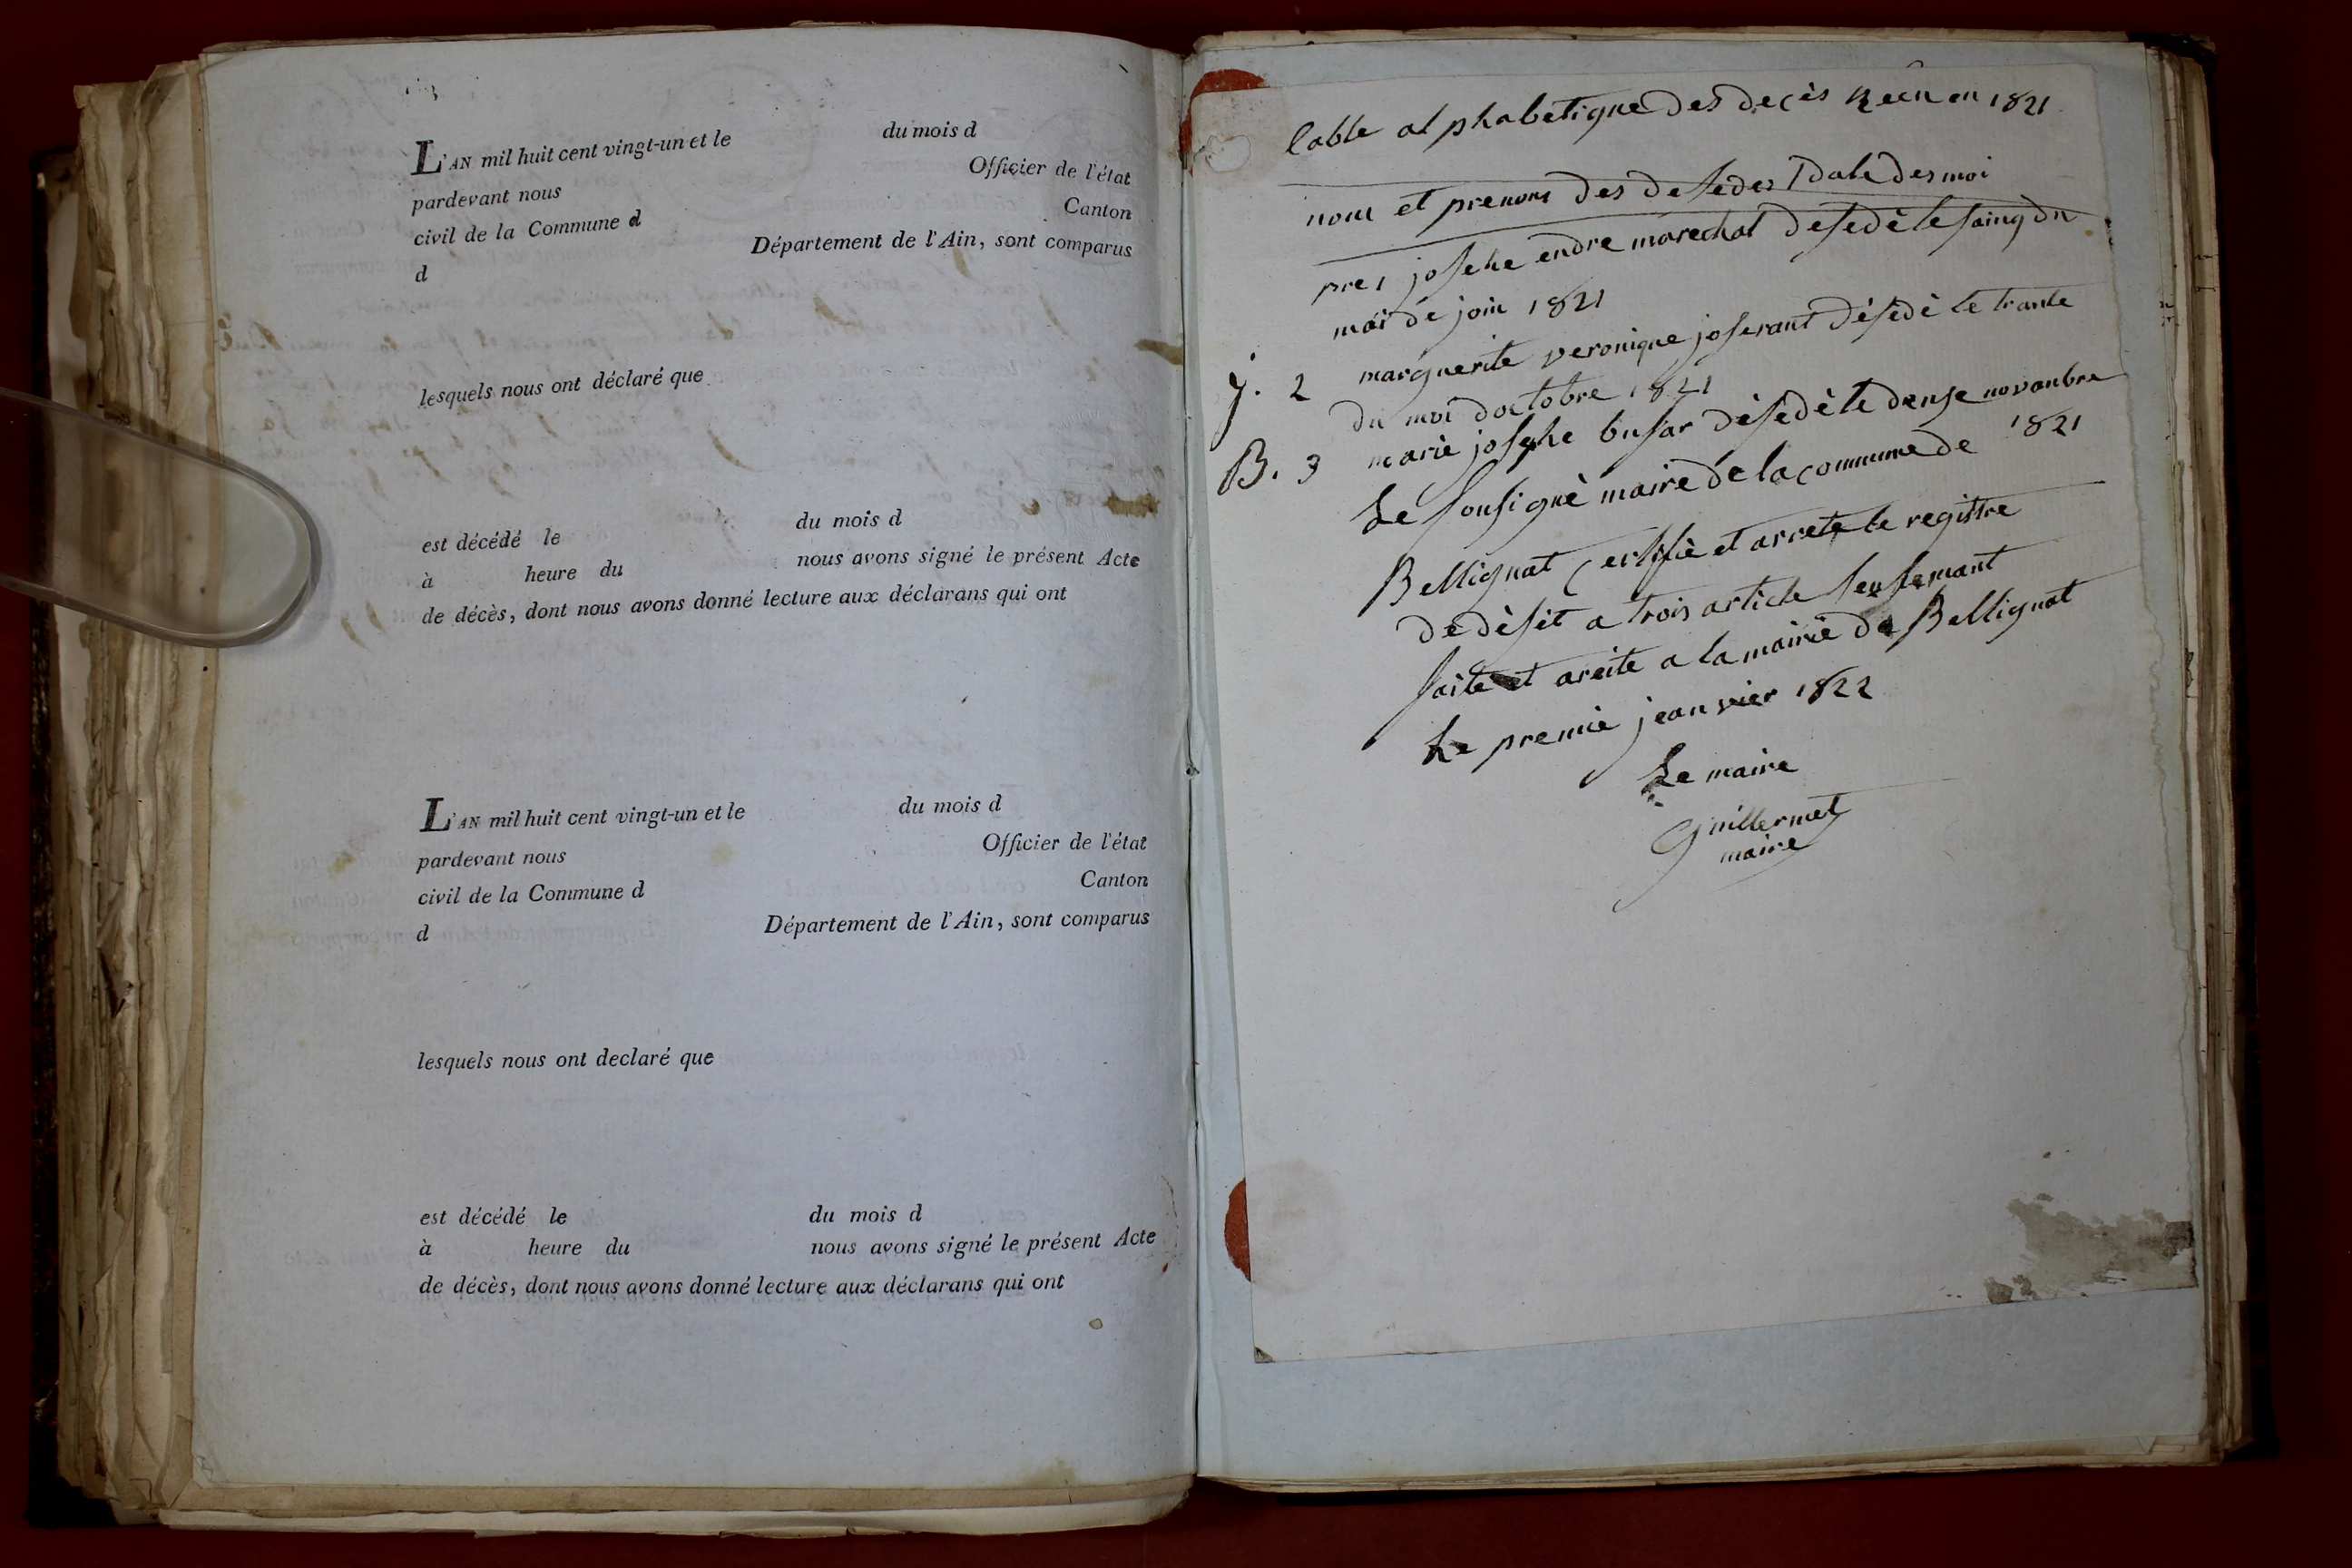 L'AN mil huit cent vingt-un et le du mois d
pardevant nous Officier de l'état
civil de la Commune d Canton
d Département de l'Ain, sont comparus
lesquels nous ont déclaré que
est décédé le du mois d
à heure du nous avons signé le présent Acte
de décès, dont nous avons donné lecture aux déclarans qui ont
L'AN mil huit cent vingt-un et le du mois d
pardevant nous Officier de l'état
civil de la Commune d Canton
d Département de l'Ain, sont comparus
lesquels nous ont declaré que
est décédé le du mois d
à heure du nous avons signé le présent Acte
de décès, dont nous avons donné lecture aux déclarans qui ont
table alphabetique des decès en 1821
nom et prenoms des desedes date des moi
josehe endre marechal desedè le saing du
moi de join 1821
j. 2 marguerite veronique joserant dèsedè le trante
du moi doctobre 1821
B. 3 marie josephe busar dèsedè le dense novanbre
1821
Le sousignè maire de la commune de
Bellignat certifiè et arrete le registre
de dèsèt a trois article seulemant
faite et areite a la mairie de Bellignat
Le premie jeanvier 1822
Le maire
Guillermet
maire